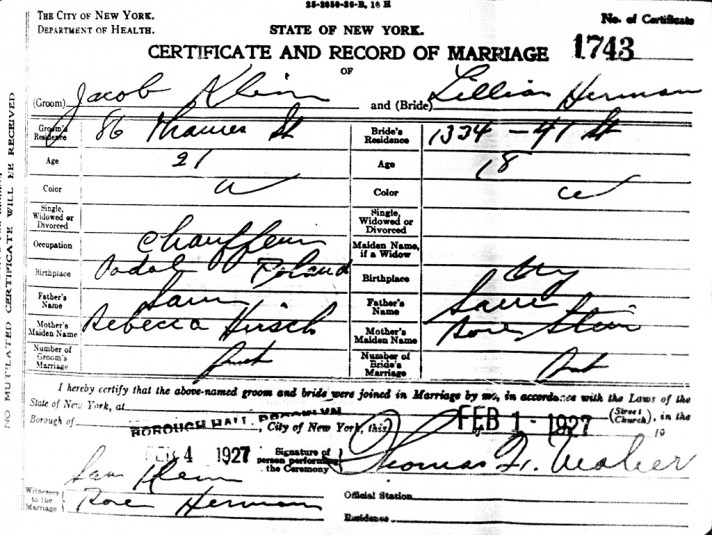 25-2050-26-B, 16 H
THE CITY OF NEW YORK.
DEPARTMENT OF HEALTH.
STATE OF NEW YORK.
No. of Certificate
CERTIFICATE AND RECORD OF MARRIAGE
1743
OF
(Groom) Jacob Klein and (Bride) Lillian Herman
Groom's Residence 86 Thames St Bride's Residence 1334 - 41 St
Age 21 Age 18
Color W Color W
Single, Widowed or Divorced Single, Widowed or Divorced
Occupation Chauffeur Maiden Name, if a Widow
Birthplace Poland Birthplace NY
Father's Name Sam Father's Name Sam
Mother's Maiden Name Rebecca Hirsch Mother's Maiden Name Rose Stein
Number of Groom's Marriage first Number of Bride's Marriage first
I hereby certify that the above-named groom and bride were joined in Marriage by me, in accordance with the Laws of the
State of New York, at (Street Church), in the
Borough of BOROUGH HALL, BROOKLYN, City of New York, this FEB 1 - 1927 of 19
FEB 4 1927 Signature of person performing the Ceremony Thomas F.
Witnesses to the Marriage Sam Klein
Rose Herman
Official Station
Residence
NO MUTILATED CERTIFICATE WILL BE RECEIVED